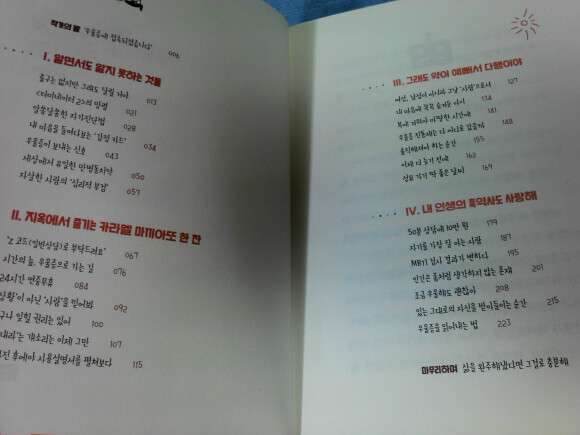 작가의 말 우울증에 접속되었습니다 006
I. 알면서도 알지 못하는 것들
출구는 없지만 그래도 달릴 거야 013
<터미네이터 2>의 일령 021
알쏭달쏭한 자가진단법 028
내 마음을 들여다보는 '감정 카드' 034
우울증이 보내는 신호 043
세상에서 유일한 만병통치약 050
자상한 사람의 '심리적 부검' 057
II. 지옥에서 즐기는 카라멜 마끼아또 한 잔
'Z 코드(일반상담)로 부탁드려요' 067
시간의 늪, 우울증으로 가는 길 076
24시간 연중무휴 084
상황'이 아닌 '사람'을 믿어봐 092
구나 잊힐 권리는 있어 100
내리'는 개소리는 이제 그만 107
진 후에야 사용설명서를 펼쳐보다 115
III. 그래도 약이 예뻐서 다행이야
여성, 남성이 아니라 그냥 '사람'으로서 127
내 마음에 꼭꼭 숨겨둔 아이 134
복에 겨워서 미안한 시간에 141
우울증 친구들은 다 어디로 갔을까 148
솔직해져야 하는 순간 155
이제 다 늦기 전에 162
정로 가기 딱 좋은 날씨 169
IV. 내 인생의 흑역사도 사랑해
50분 상담에 10만 원 179
자기를 가장 잘 아는 사람 187
MBTI 검사 결과가 변하다 195
인간은 홈처럼 생각하지 않는 존재 201
조금 우울해도 괜찮아 208
있는 그대로의 자신을 받아들이는 순간 215
우울증을 잃어내는 법 223
마무리하며 삶을 완주해냈다면 그걸로 충분해